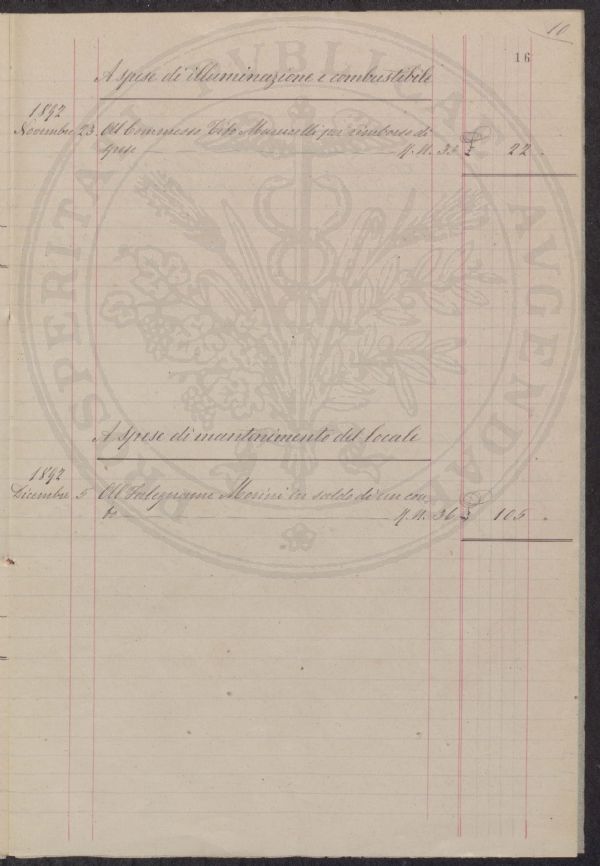 10
16
A spese di illuminazione e combustibile
1892
Novembre 23. Al Commesso Tito per rimborso di
spese M. N. 33 £ 22 .
A spese di mantenimento del locale
1892
Dicembre 5 Al Falegname Morini in saldo di un con-
to M. N. 36 £ 105 .
PROSPERITATI PVBLICAE AVGENDAE